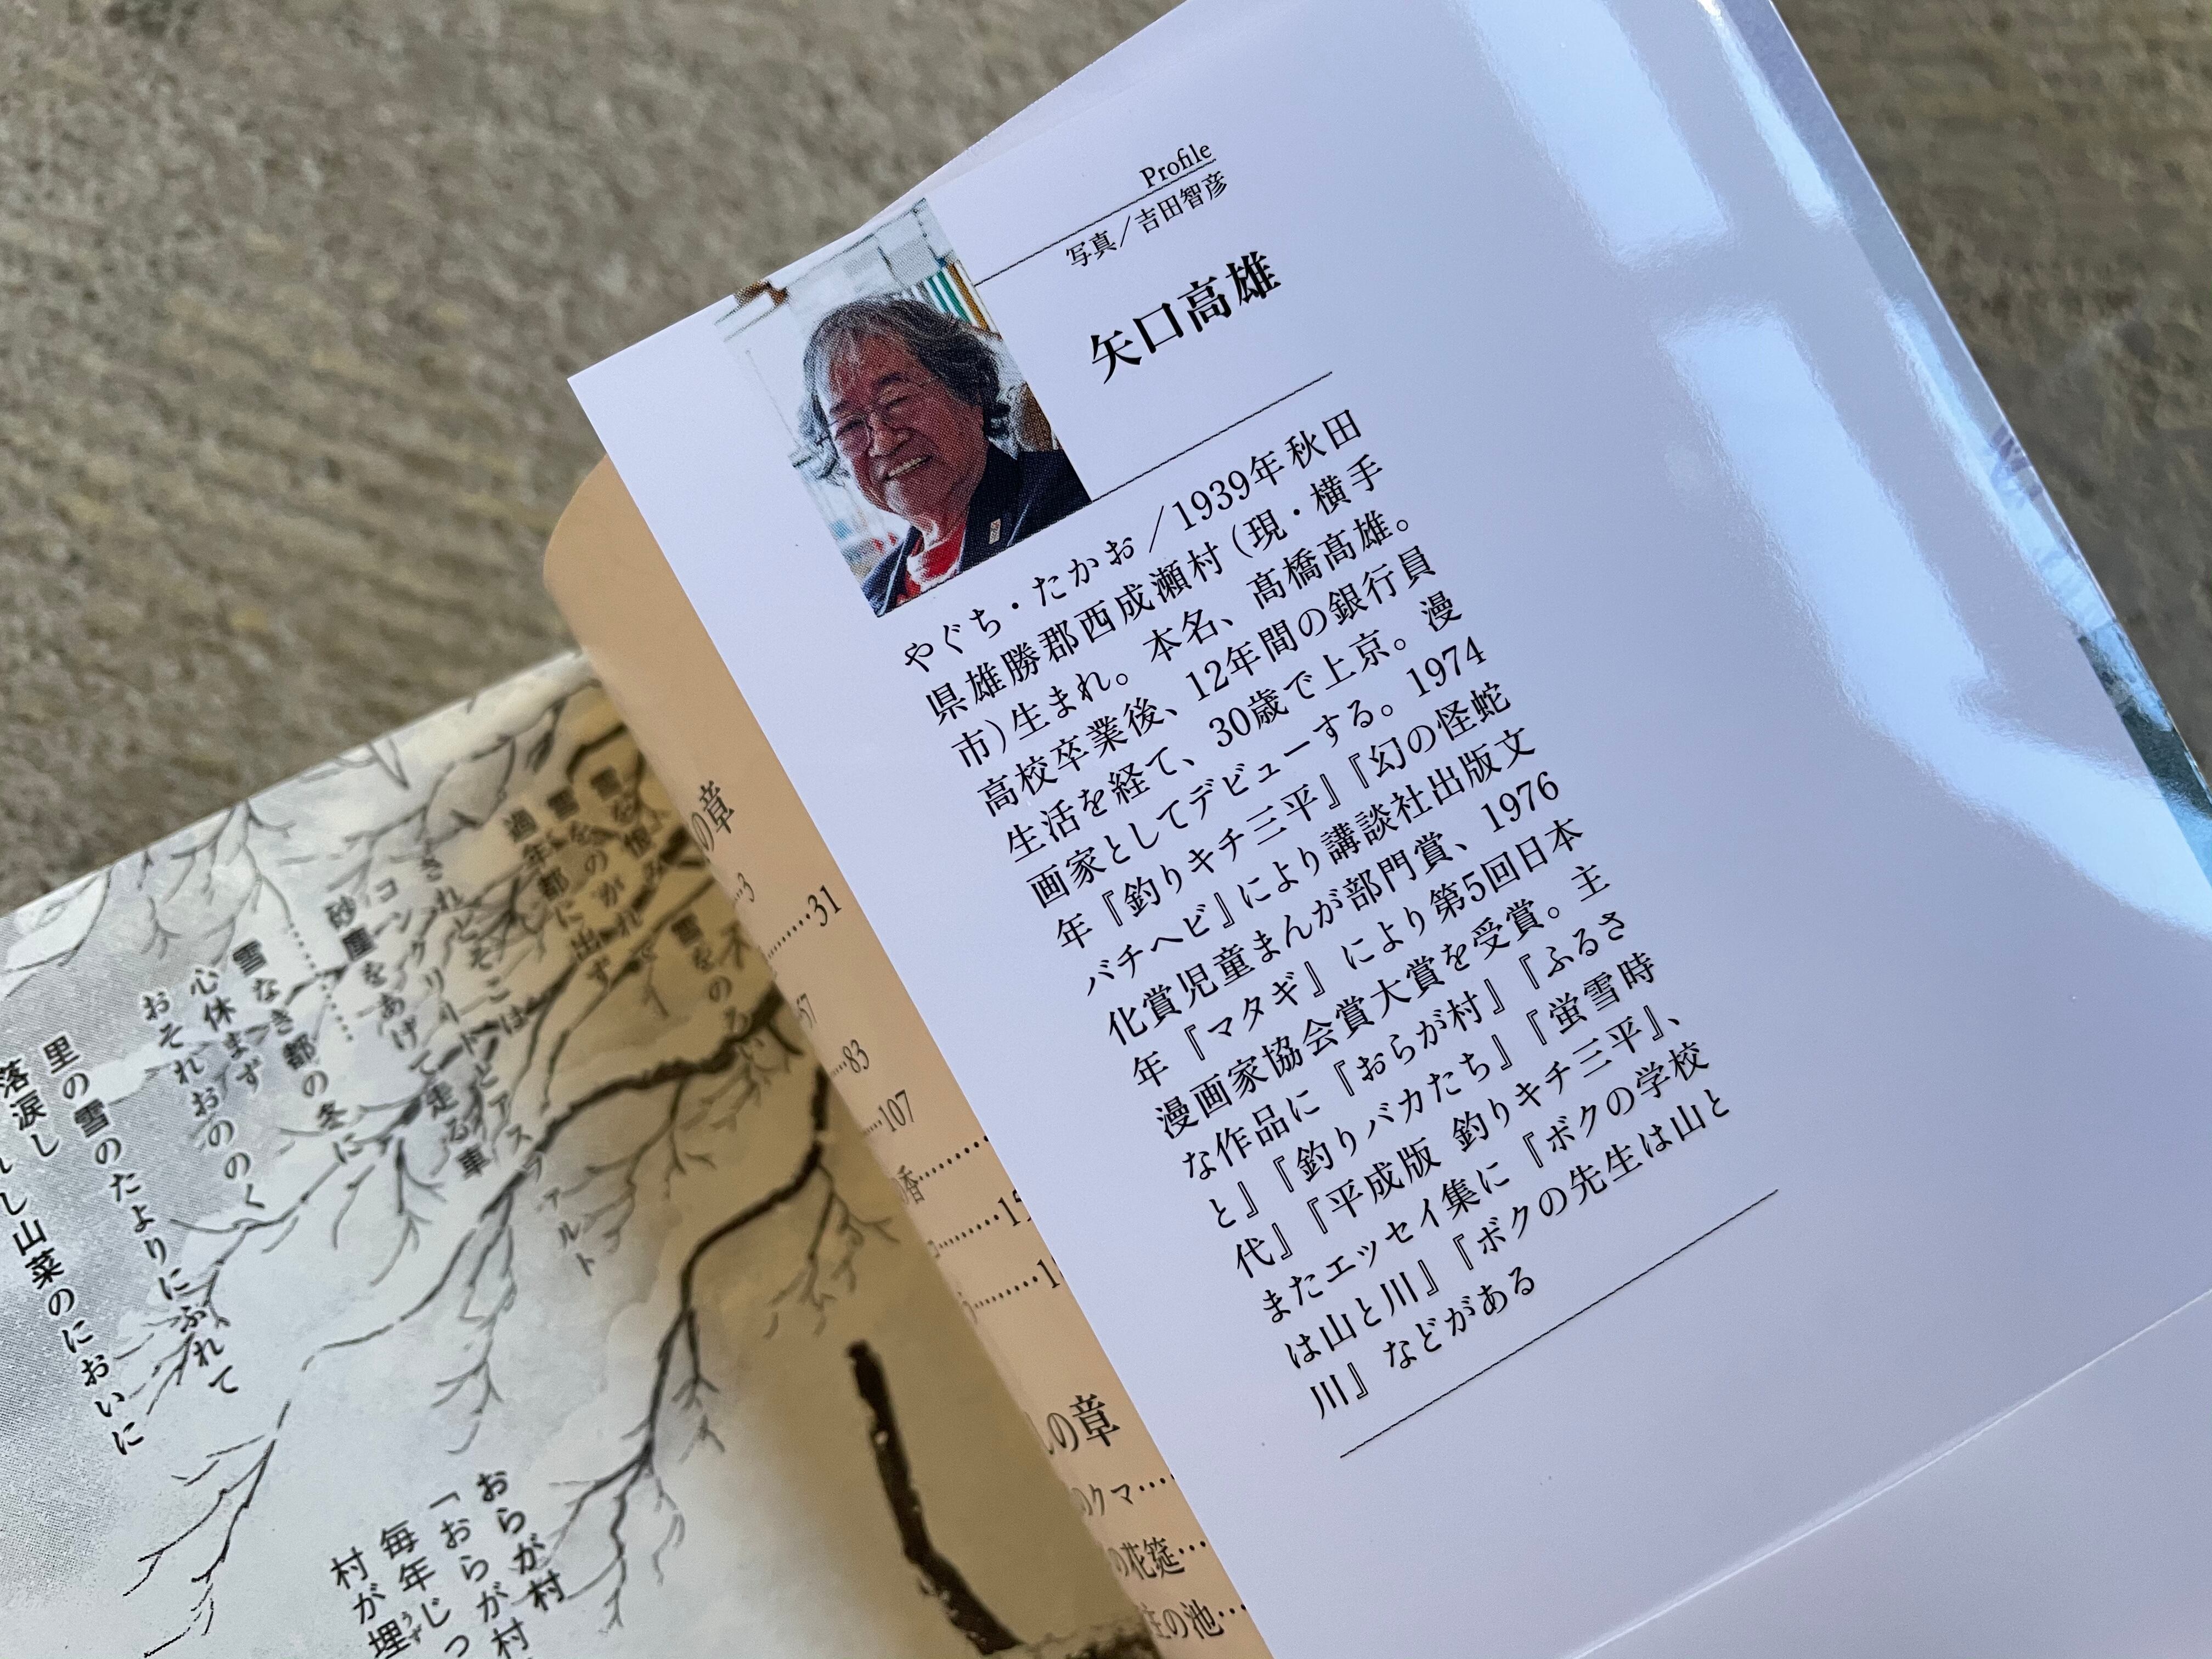 Profile
写真／吉田智彦
矢口高雄
やぐち・たかお／1939年秋田
県雄勝郡西成瀬村（現・横手
市）生まれ。本名、髙橋高雄。
高校卒業後、12年間の銀行員
生活を経て、30歳で上京。漫
画家としてデビューする。1974
年『釣りキチ三平』『幻の怪蛇
バチヘビ』により講談社出版文
化賞児童まんが部門賞、1976
年『マタギ』により第5回日本
漫画家協会賞大賞を受賞。主
な作品に『おらが村』『ふるさ
と』『釣りバカたち』『蛍雪時
代』『平成版 釣りキチ三平』、
またエッセイ集に『ボクの学校
は山と川』『ボクの先生は山と
川』などがある
の章
3
31
57
83
107
の章
のクマ
の花筵
の池
雪を恨み
雪をのがれ
過年都に出ず
されどそこは
コンクリートとアスファルト
砂塵をあげて走る車
雪なき都の冬に
心休まず
おそれおののく
里の雪のたよりにふれて
落涙し
し山菜のにおいに
おらが村
「おらが村
毎年じっ
村が埋